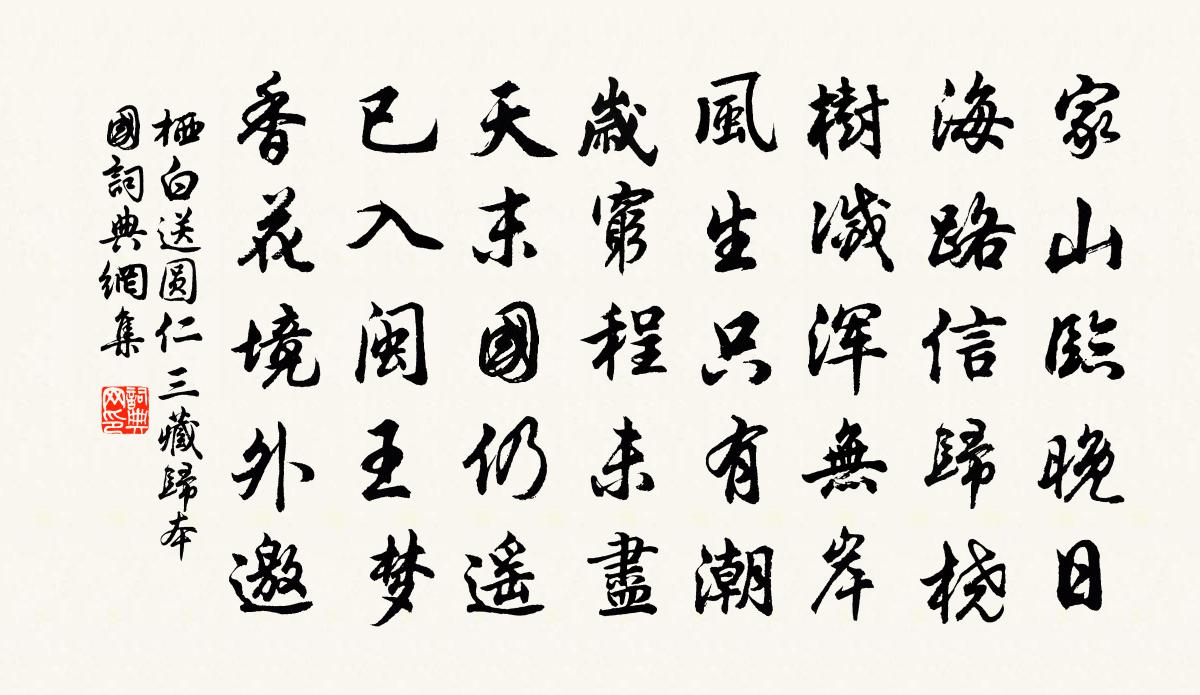 家山臨晚日
海路信歸桡
樹滅浑無岸
風生只有潮
歳窮程未盡
天末國仍遥
已入闽王梦
香花境外邀
栖白送圆仁三藏歸本
國詞典網集
詞典
网印